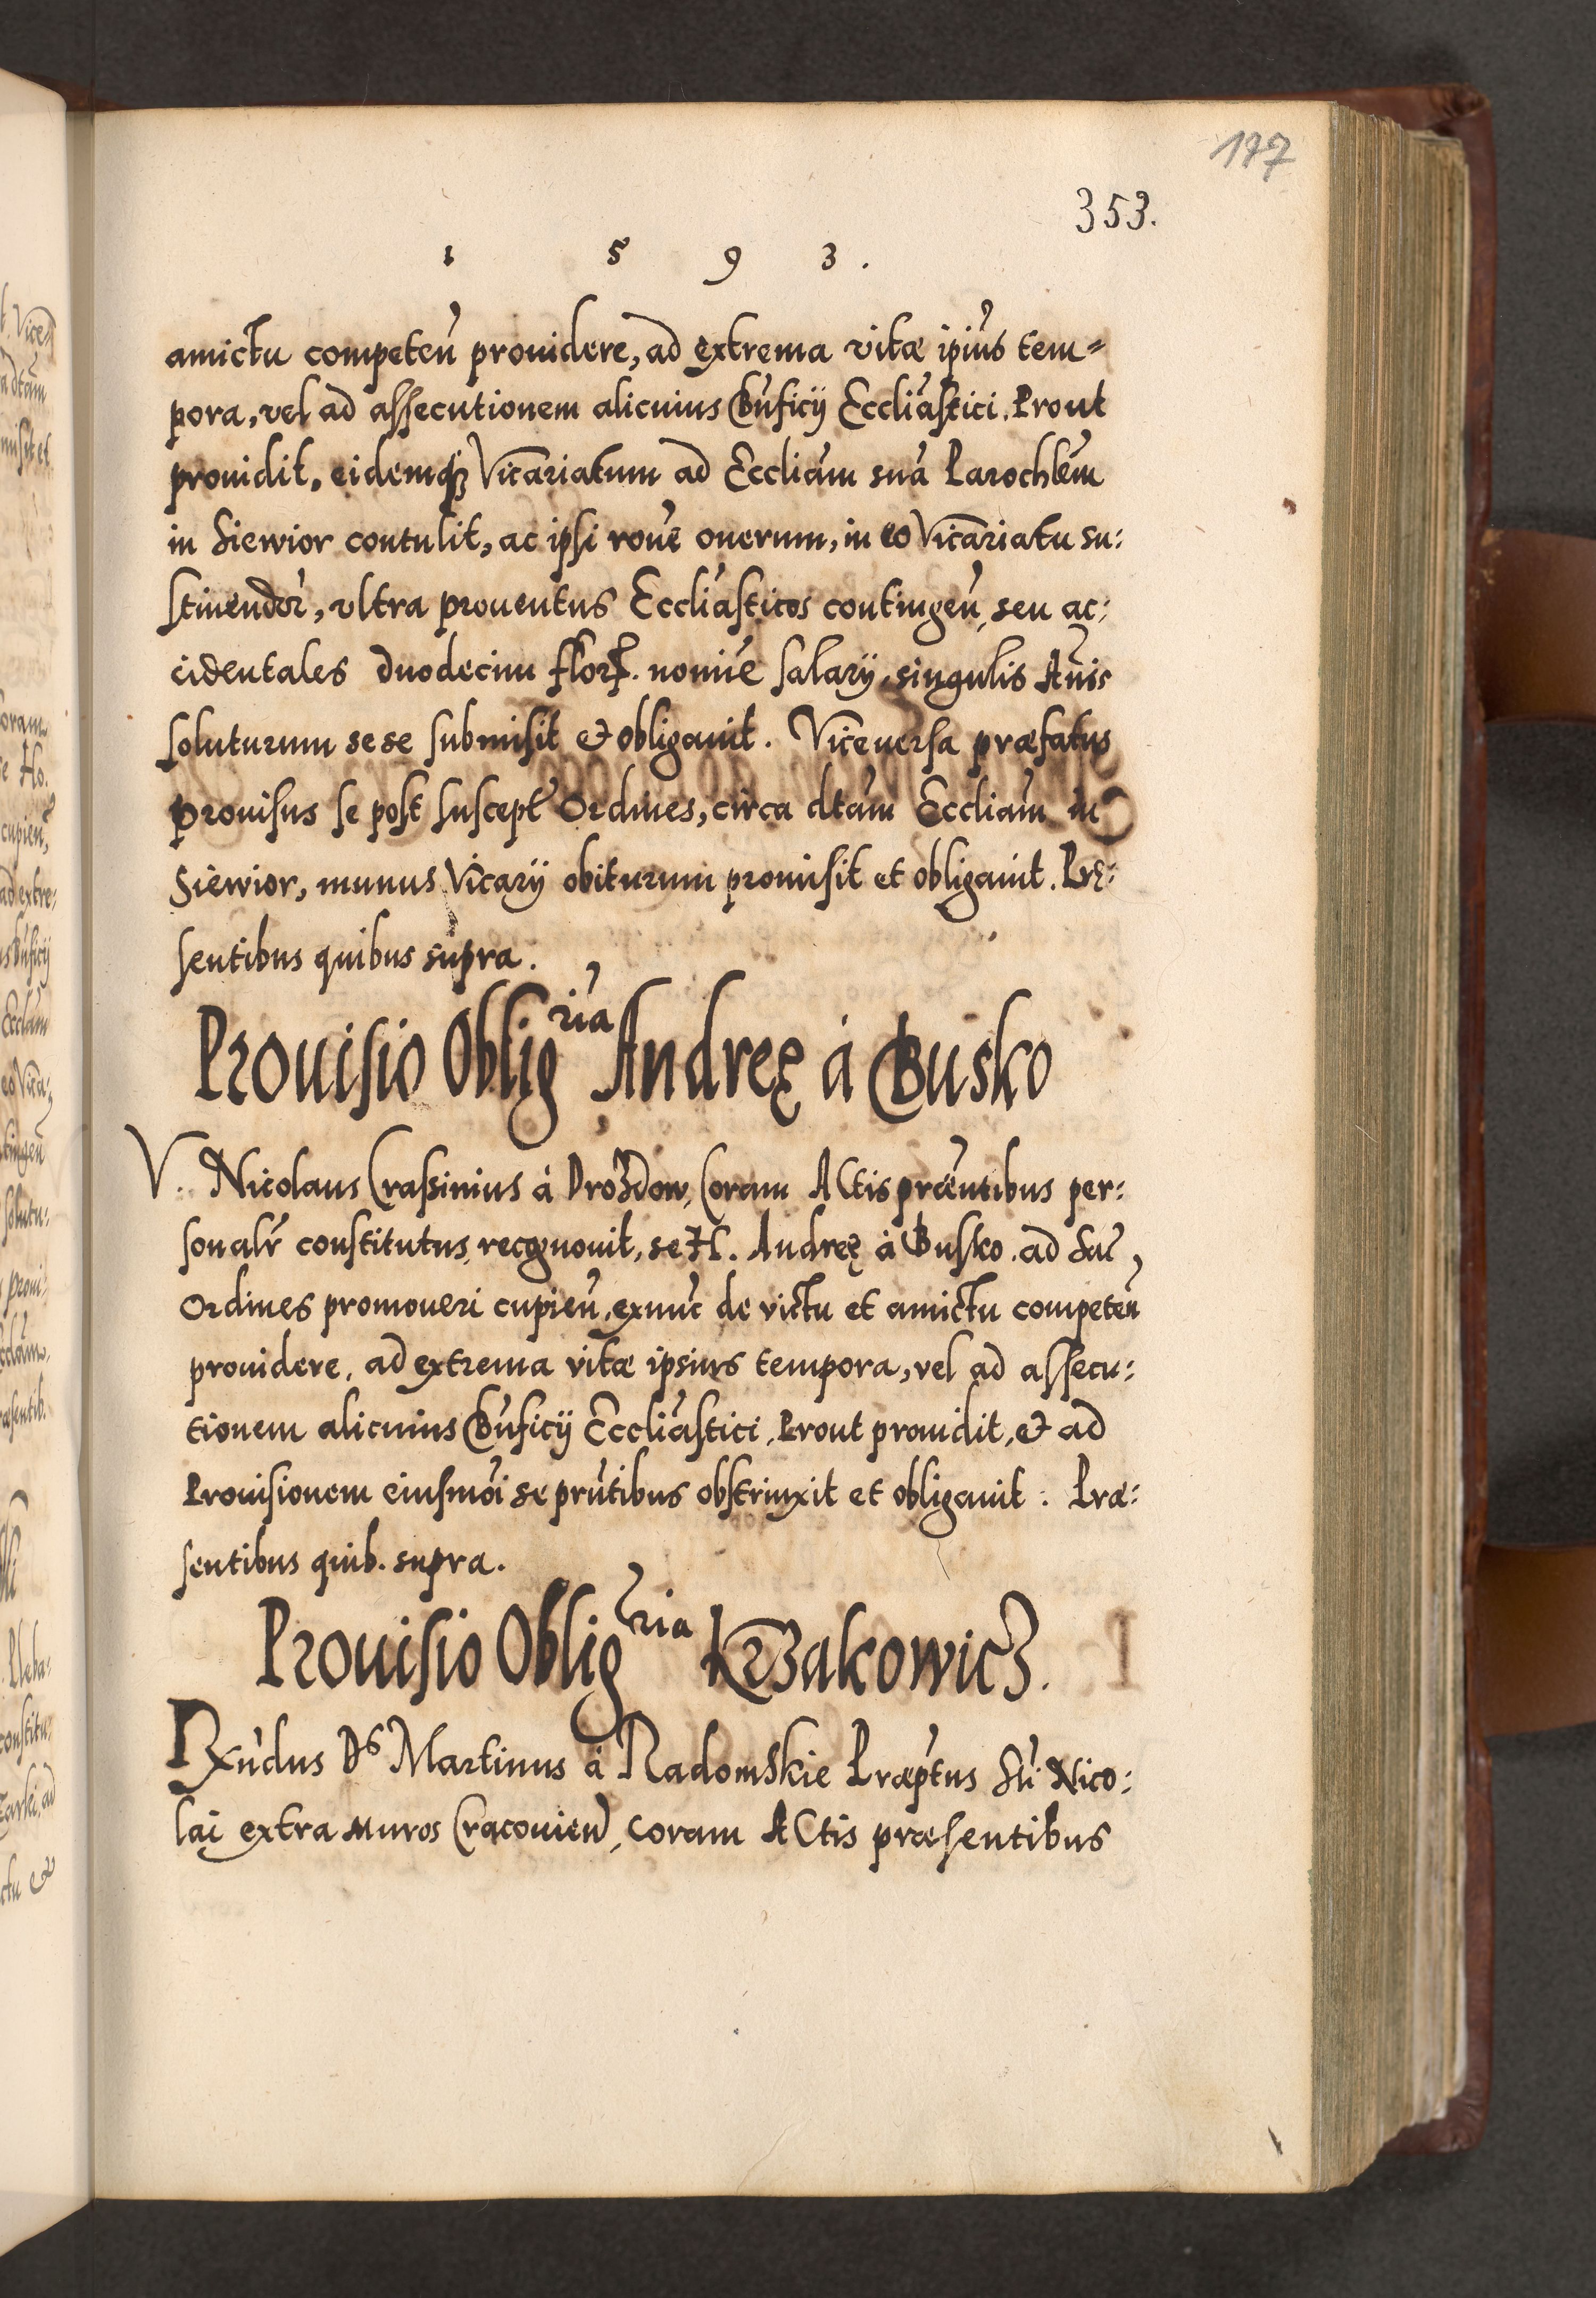 177
353.
1 5 9 3.
amictu competeñ prouidere, ad extrema vitæ ipius tem=
pora, vel ad assecutionem alicuius Bñficij Eccliastici. Prout
prouidit, eidemq3 Vicariatum ad Eccliam suã Parochlem
in Siewior contulit, ac ipsi rõne onerum, in eo Vicariatu su:
stinendor, vltra prouentus Eccliasticos contingeñ, seu ac:
cidentales duodecim flor. nomĩe salarij, singulis Ãnis
soluturum sese submisit et obligauit. Viceuersa præfatus
prouisus se post suscept Ordines, circa dtam Eccliam in
Siewior, munus Vicarij obiturum promisit et obligauit. Prę:
sentibus quibus supra.
Prouisio Oblig^ria Andreę à Busko
V. Nicolaus Crassinius à Drozdow, Coram Actis præntibus per:
sonalr constitutus, recognouit, se H. Andreę à Busko ad Sac
Ordines promoueri cupieñ, exnũc de victu et amictu competeñ
prouidere, ad extrema vitæ ipsius tempora, vel ad assecu:
tionem alicuius Bñficij Eccliastici, Prout prouidit, et ad
Prouisionem eiusmõi se prñtibus obstrinxit et obligauit. Præ:
sentibus quib. supra.
Prouisio Oblig^ria Krzakowicz.
Rxñdus D^s Martinus à Radomskie Præptus Sti Nico:
lai extra muros Cracouieñ, coram Actis præsentibus